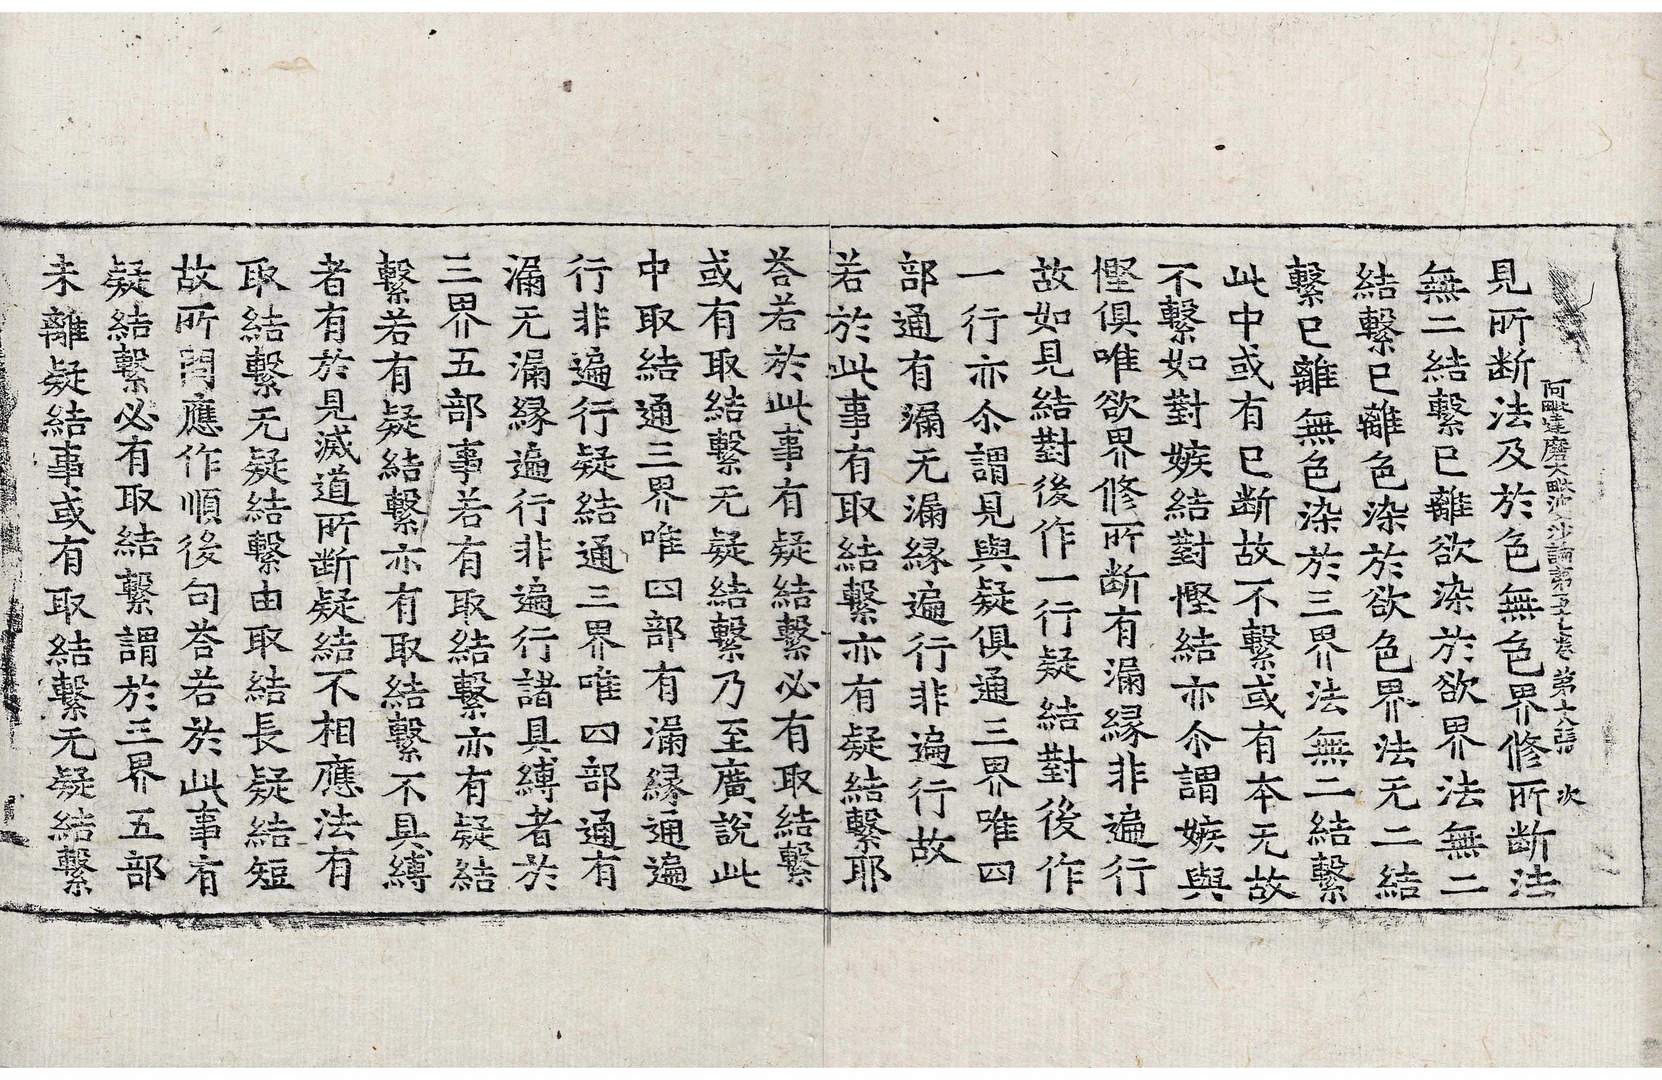 阿毗達磨大毗沙論第五七卷 第六張 次
見所断法及於色無色界修所断法
無二結繫已離欲染於欲界法無二
結繫已離色染於欲色界法无二結
繫已離無色染於三界法無二結繫
此中或有已断故不繫或有本无故
不繫如對嫉結對慳結亦尒謂嫉與
慳俱唯欲界修所断有漏緣非遍行
故如見結對後作一行疑結對後作
一行亦尒謂見與疑俱通三界唯四
部通有漏无漏緣遍行非遍行故
若於此事有取結繫亦有疑結繫耶
荅若於此事有疑結繫必有取結繫
或有取結繫无疑結繫乃至廣說此
中取結通三界唯四部有漏緣通遍
行非遍行疑結通三界唯四部通有
漏无漏緣遍行非遍行諸具縛者於
三界五部事若有取結繫亦有疑結
繫若有疑結繫亦有取結繫不具縛
者有於見滅道所断疑結不相應法有
取結繫无疑結繫由取結長疑結短
故所問應作順後句荅若於此事有
疑結繫必有取結繫謂於三界五部
未離疑結事或有取結繫无疑結繫